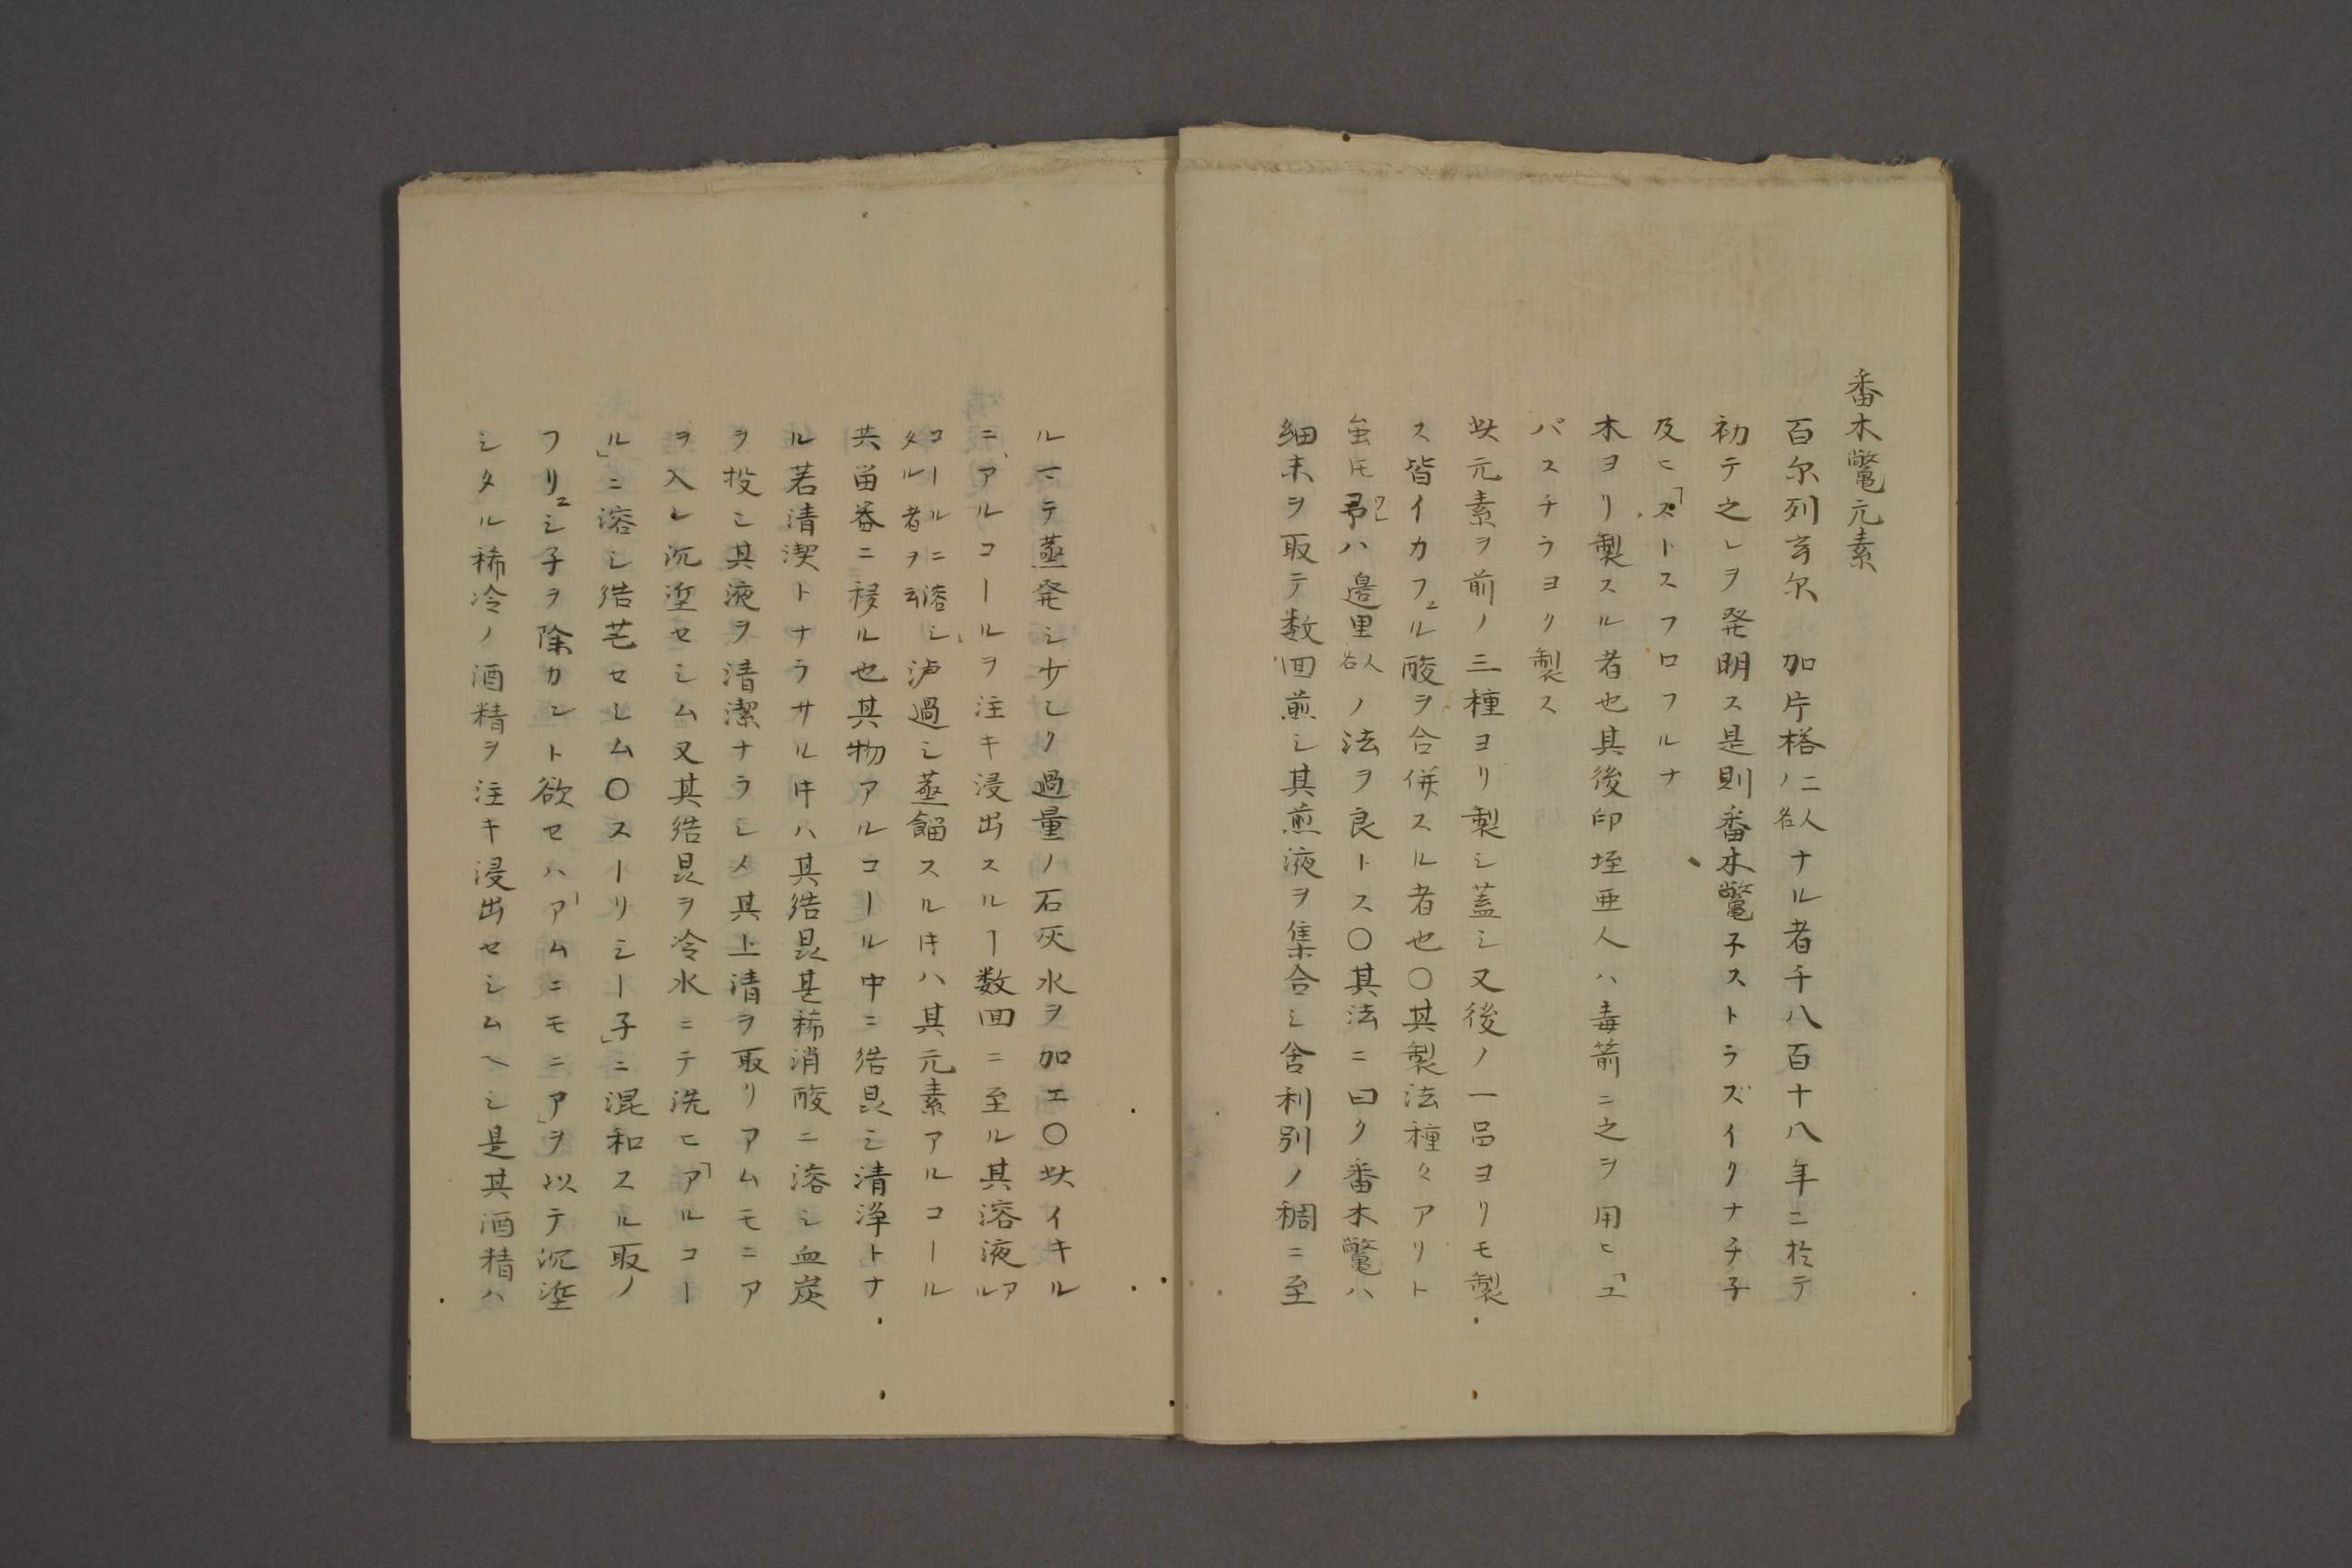 番木鼈元素
百尓列多尓　加片格ノ二人名ナル者千八百十八年ニ於テ
初テ之レヲ発明ス是則番木鼈子ストラズイクナチ子
及ヒ「ストスフロフルナ
木ヨリ製スル者也其後印垤亜人ハ毒箭ニ之ヲ用ヒ「エ
パスチラヨリ製ス
此元素ヲ前ノ三種ヨリ製シ蓋シ又後ノ一品ヨリモ製
ス皆イカフェル酸ヲ合併スル者也〇其製法種々アリト
虽𪜈予ハ邉里人名ノ法ヲ良トス〇其法ニ曰ク番木鼈ハ
細末ヲ取テ数囬煎シ其煎液ヲ集合シ舎利別ノ稠ニ至
ルマテ蒸発シ少シク過量ノ石灰水ヲ加エ〇此イキル
ニアルコールヲ注キ浸出スルヿ数囬ニ至ル其溶液アル
コールニ溶シタル者ヲ云泸過シ蒸餾スル𪜈ハ其元素アルコール
共留器ニ移ル也其物アルコール中ニ結晶シ清浄トナ
ル若清潔トナラサル𪜈ハ其結晶甚稀消酸ニ溶シ血炭
ヲ投シ其液ヲ清潔ナラシメ其上清ヲ取リアムモニア
ヲ入レ沉埿セシム又其結晶ヲ冷水ニテ洗ヒ「アルコー
ル」ニ溶シ結芒セシム〇スーリシー子」ニ混和スル取ノ
フリュシ子ヲ除カント欲セハ「アムニモニア」ヲ以テ沉埿
シタル稀冷ノ酒精ヲ注キ浸出セシムヘシ是其酒精ハ